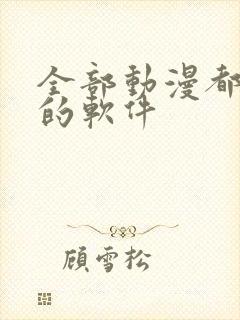 全部動漫都
的軟件
顧雪松